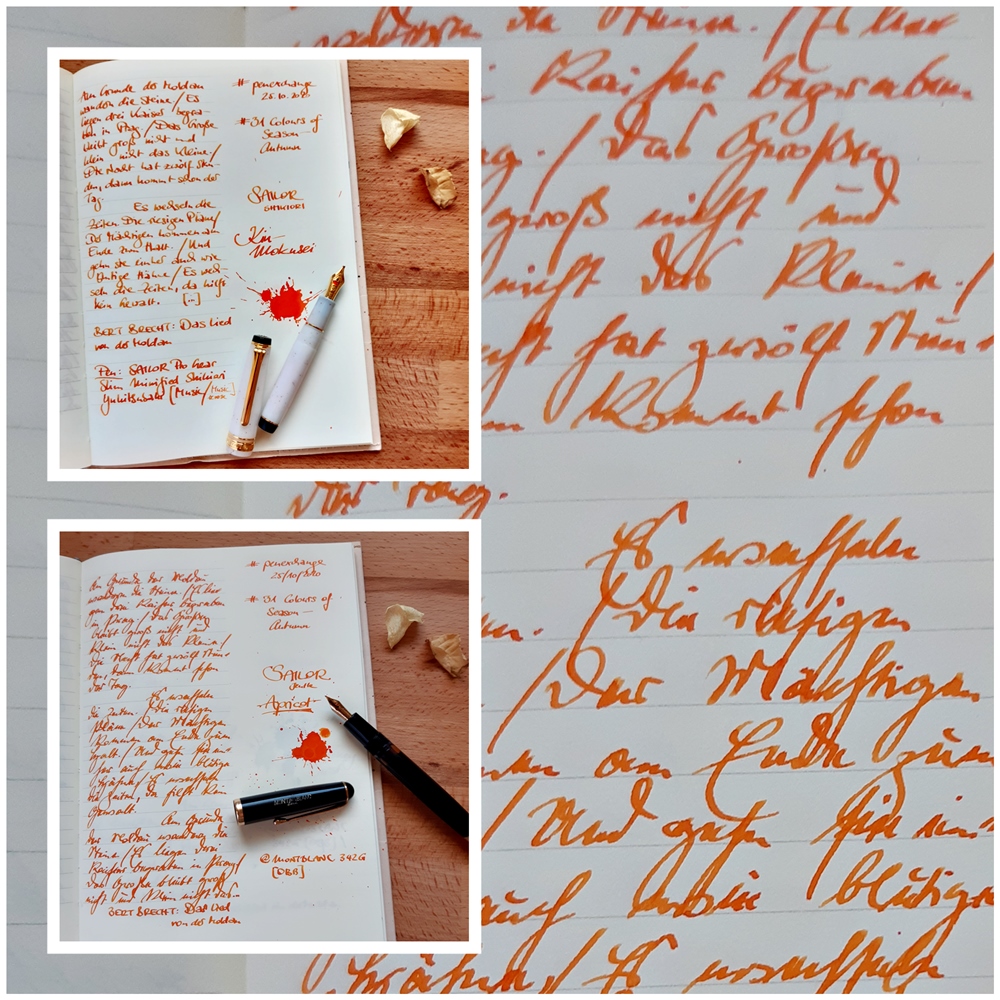 Am Grunde der Moldau
wandern die Steine / Es
liegen drei Kaiser begra-
ben in Prag / Das Große
bleibt groß nicht und
klein nicht das Kleine /
Die Nacht hat zwölf Stun-
den, dann kommt schon der
Tag.
Es wechseln die
Zeiten. Die riesigen Pläne /
Der Mächtigen kommen am
Ende zum Halt. / Und
gehn sie einher auch wie
blutige Hähne / Es wech-
seln die Zeiten, da hilft
kein Gewalt. [...]
BERT BRECHT: Das Lied
von der Moldau
Pen: SAILOR Pro Gear
Slim Minified Shikiori
[Music/
# penexchange
25.10.
#31 Colours of
Season —
Autumn
SAILOR
SHIKIORI
Kin-
Mokusei
Am Grunde der Moldau
wandern die Steine / Es lie-
gen drei Kaiser begraben
in Prag. / Das Große
bleibt groß nicht und
klein nicht das Kleine. /
Die Nacht hat zwölf Stun-
den, dann kommt schon
der Tag.
Es wechseln
die Zeiten. / Die riesigen
Pläne / Der Mächtigen
kommen am Ende zum
Halt. / Und gehn sie ein-
her auch wie blutige
Hähne / Es wechseln
die Zeiten, da hilft kein
Gewalt.
Am Grunde
der Moldau wandern die
Steine / Es liegen drei
Kaiser begraben in Prag /
Das Große bleibt groß
nicht und klein nicht das
BERT BRECHT: Das Lied
von der Moldau
# penexchange
25/10/2020
# 31 Colours of
Season —
Autumn
SAILOR
Jentle
Apricot
MONTBLANC 342G
[OBB]
wandern die Steine. / Es lie
Kaiser begraben
ag. / Das Große
groß nicht und
nicht das Kleine. /
cht hat zwölf Stun-
n kommt schon
der Tag.
Es wechseln
en. / Die riesigen
/ Der Mächtigen
men am Ende zum
/ Und gehn sie ein-
auch wie blutige
Hähne / Es wechseln